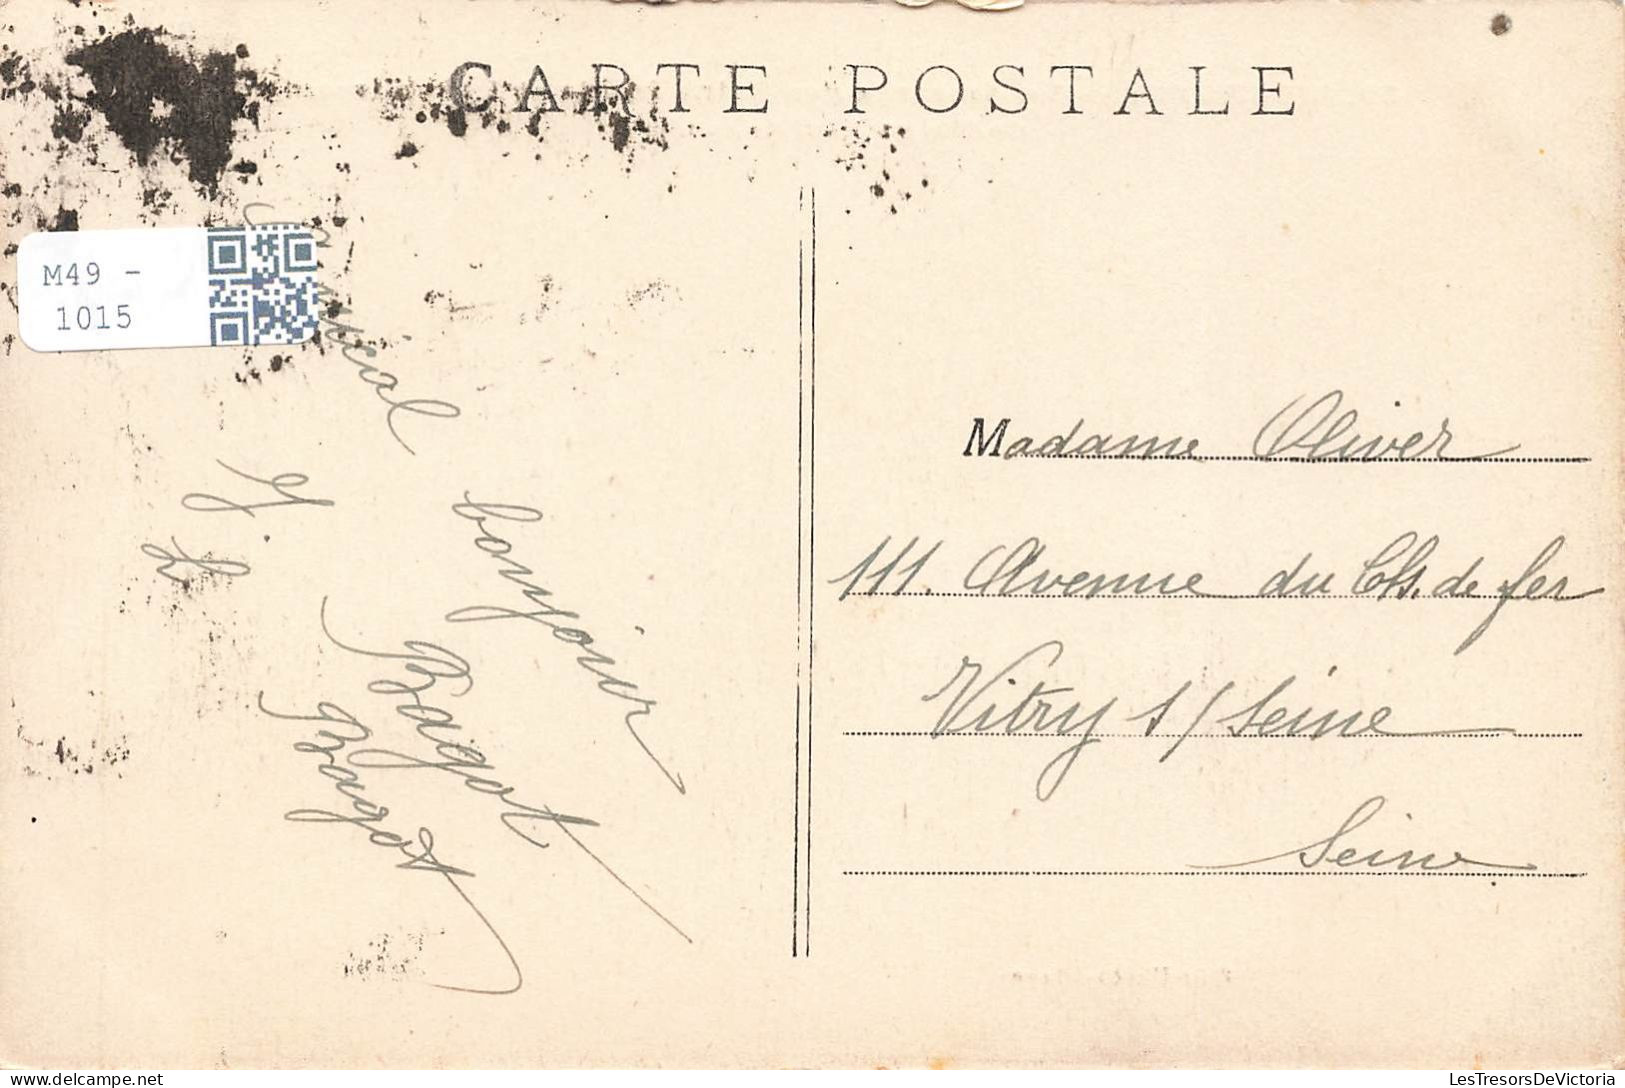 CARTE POSTALE
M49 -
1015
bonjour
J. Bagot
L Bagot
Madame Oliver
111. Avenue du Ch. de fer
Vitry s/ Seine
Seine
LesTresorsDeVictoria